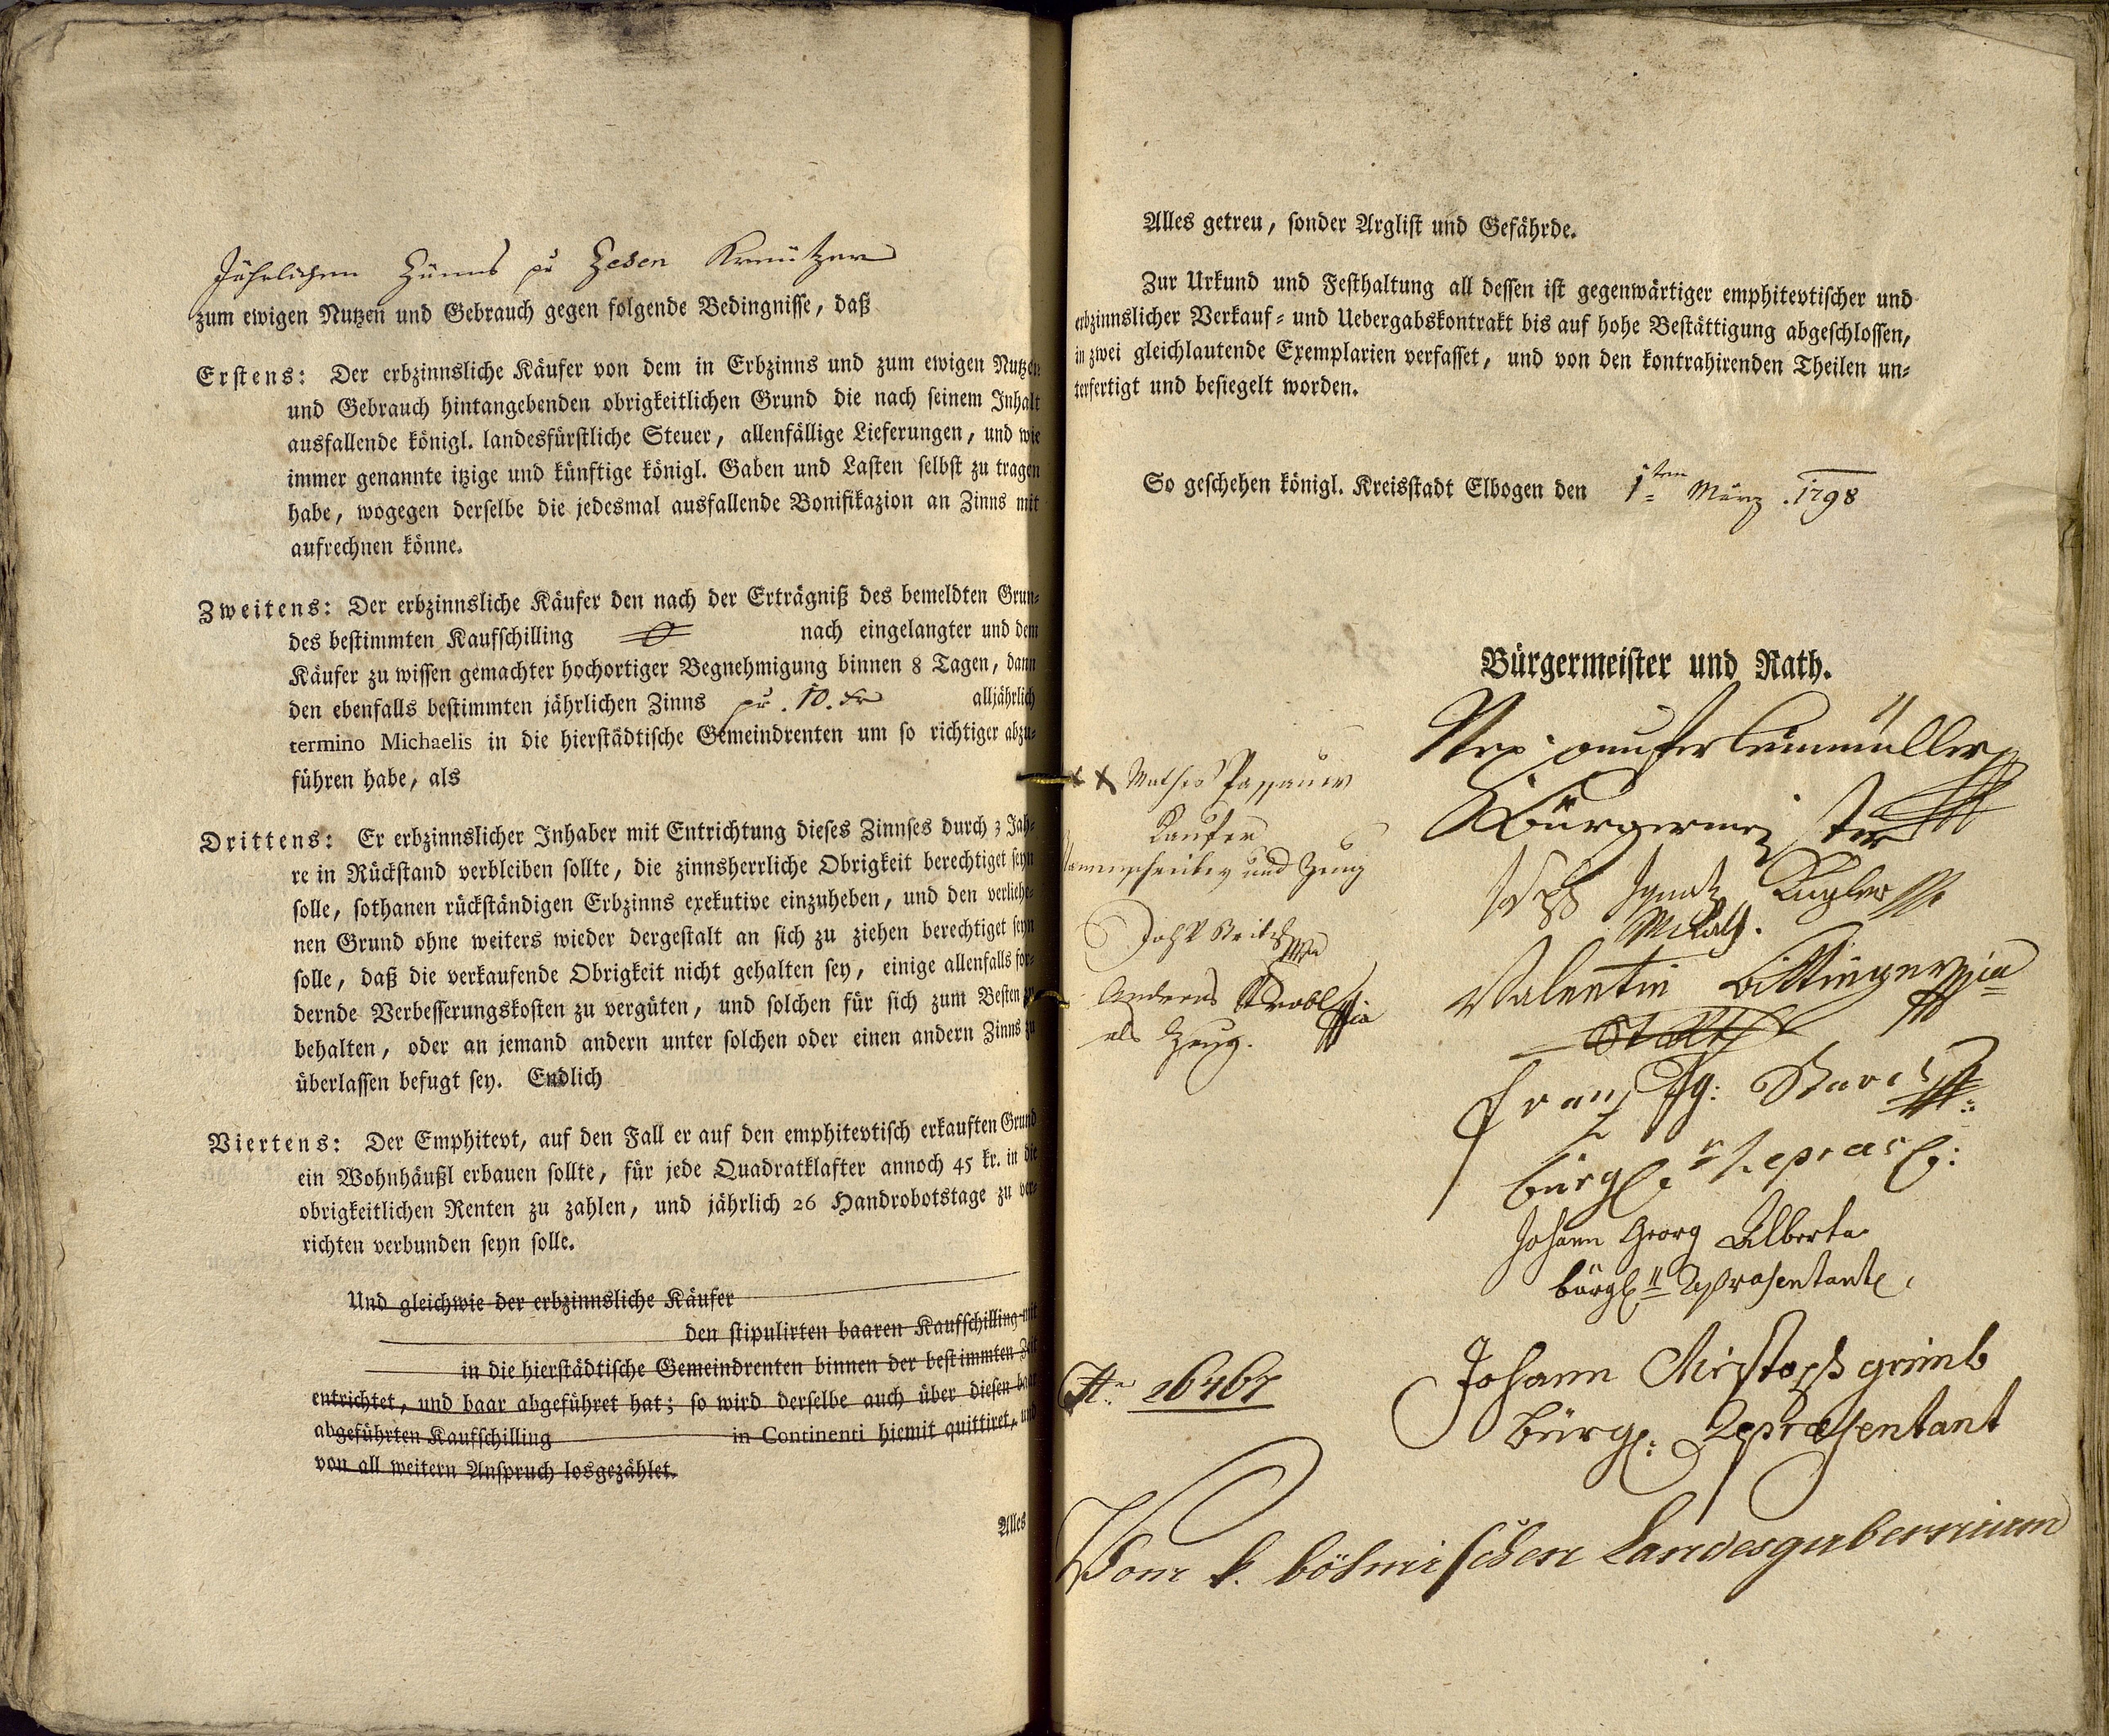 Jährlichen Zünns pr Zehen Kreützer
zum ewigen Nutzen und Gebrauch gegen folgende Bedingnisse, daß
Erstens: Der erbzinnsliche Käufer von dem in Erbzinns und zum ewigen Nutzen
und Gebrauch hintangebenden obrigkeitlichen Grund die nach seinem Inhalt
ausfallende königl. landesfürstliche Steuer, allenfällige Lieferungen, und wie
immer genannte itzige und künftige königl. Gaben und Lasten selbst zu tragen
habe, wogegen derselbe die jedesmal ausfallende Bonifikazion an Zinns mit
aufrechnen könne.
Zweitens: Der erbzinnsliche Käufer den nach der Erträgniß des bemeldten Grun-
des bestimmten Kaufschilling nach eingelangter und dem
Käufer zu wissen gemachter hochortiger Begnehmigung binnen 8 Tagen, dann
den ebenfalls bestimmten jährlichen Zinns pr. 10. kr alljährlich
termino Michaelis in die hierstädtische Gemeindrenten um so richtiger abzu-
führen habe, als
Drittens: Er erbzinnslicher Inhaber mit Entrichtung dieses Zinnses durch 3 Jah-
re in Rückstand verbleiben sollte, die zinnsherrliche Obrigkeit berechtiget seyn
solle, sothanen rückständigen Erbzinns exekutive einzuheben, und den verliehe-
nen Grund ohne weiters wieder dergestalt an sich zu ziehen berechtiget seyn
solle, daß die verkaufende Obrigkeit nicht gehalten sey, einige allenfalls for-
dernde Verbesserungskosten zu vergüten, und solchen für sich zum Besten zu
behalten, oder an jemand andern unter solchen oder einen andern Zinns zu
überlassen befugt sey. Endlich
Viertens: Der Emphitevt, auf den Fall er auf den emphitevtisch erkauften Grund
ein Wohnhäußl erbauen sollte, für jede Quadratklafter annoch 45 kr. in die
obrigkeitlichen Renten zu zahlen, und jährlich 26 Handrobotstage zu ver-
richten verbunden seyn solle.
Und gleichwie der erbzinnsliche Käufer
den stipulirten baaren Kaufschilling mit
in die hierstädtische Gemeindrenten binnen der bestimmten Zeit
entrichtet, und baar abgeführet hat; so wird derselbe auch über diesen baar
abgeführten Kaufschilling in Continenti hiemit quittiret, und
von all weitern Anspruch losgezählet.
Alles
Alles getreu, sonder Arglist und Gefährde.
Zur Urkund und Festhaltung all dessen ist gegenwärtiger emphitevtischer und
erbzinnslicher Verkauf- und Uebergabskontrakt bis auf hohe Bestättigung abgeschlossen,
in zwei gleichlautende Exemplarien verfasset, und von den kontrahirenden Theilen un-
terfertigt und besiegelt worden.
So geschehen königl. Kreisstadt Elbogen den 1ten März 1798
Bürgermeister und Rath.
Bürgermeister
Joseph Ignatz Kugler
Valentin Bittinger
Franz Ig:
bürgl. r Repräs:
Johann Georg Alberta
bürgl. Repräsentant
Johann Christoph grimb
Bürgl: Repræsentant
x x Mathes Passauer
Kaufer
und Zeug
Andreas Strobl
als Zeug.
Vom k. böhmischen Landesgubernium